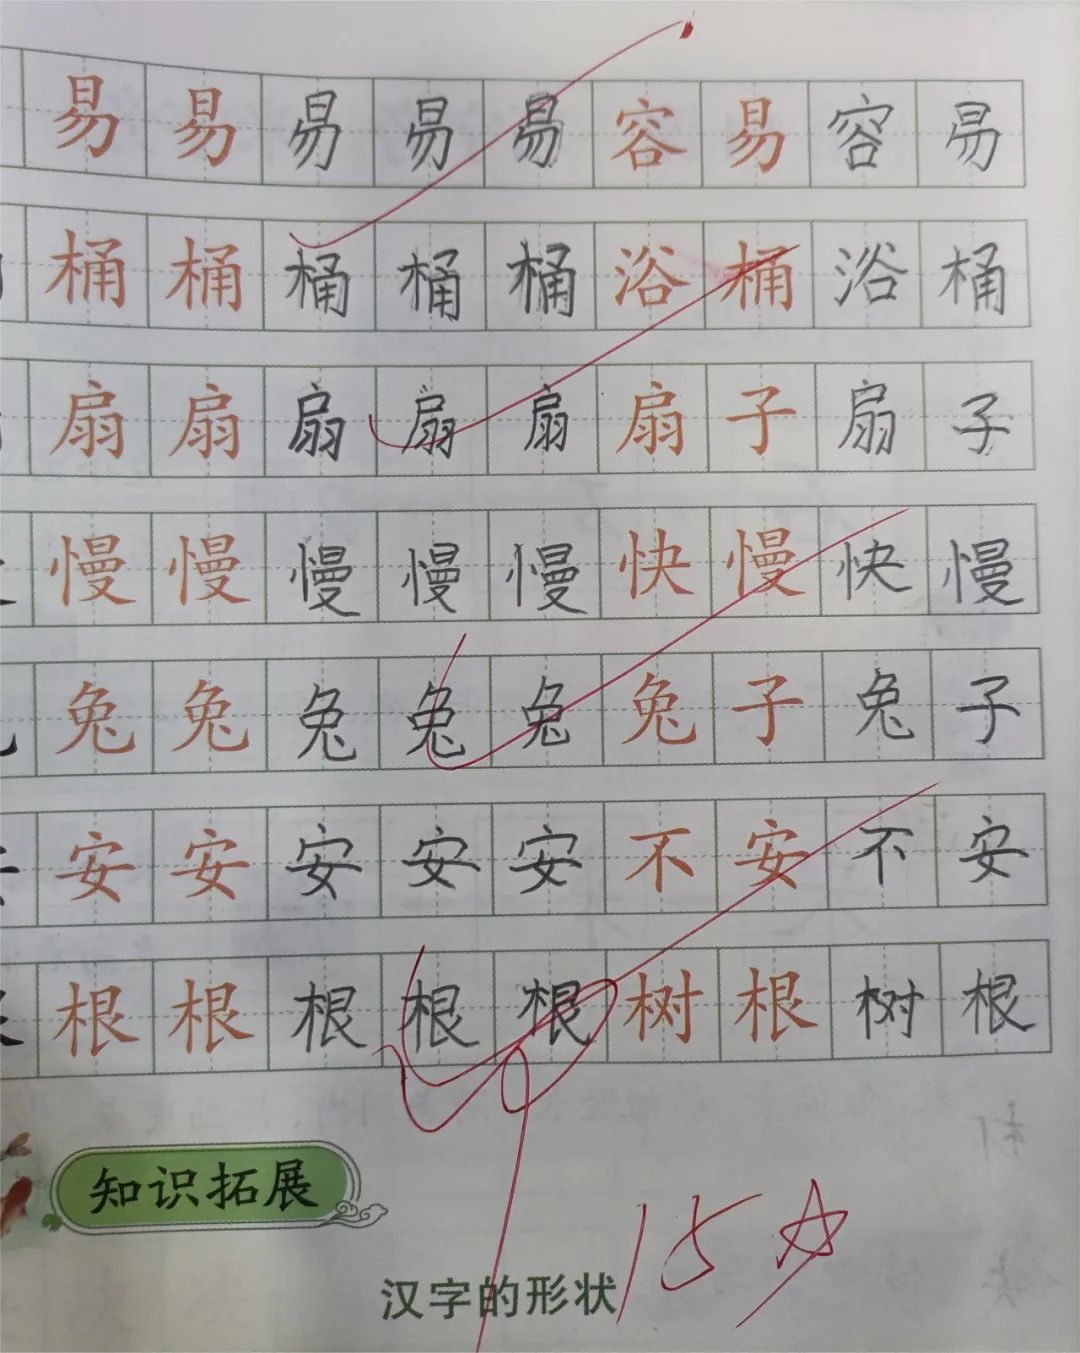 易易易易易容易容易
桶桶桶桶桶浴桶浴桶
扇扇扇扇扇扇子扇子
慢慢慢慢慢快慢快慢
兔兔兔兔兔兔子兔子
安安安安安不安不安
根根根根根树根树根
知识拓展
15☆
汉字的形状